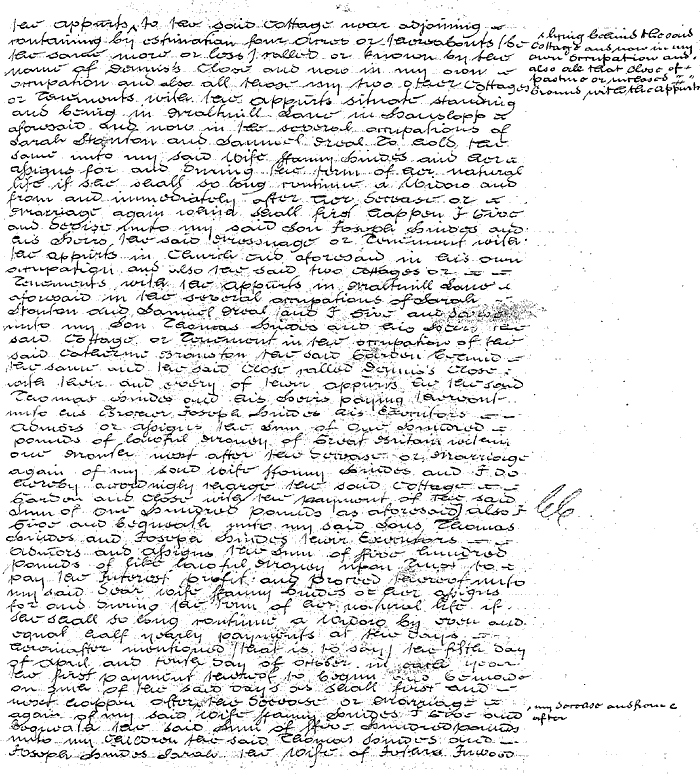 the appurts to the said Cottage near adjoining
containing by estimation four Acres or thereabouts (be
the same more or less) called or known by the
name of Dennis's Close and now in my own
occupation and also all those my two other Cottages
or Tenements with the appurts situate standing
and being in Lane in
aforesaid and now in the several occupations of
Sarah Stanton and Samuel To hold the
same unto my said Wife Fanny and her
assigns for and during the term of her natural
life if she shall so long continue a Widow and
from and immediately after her decease or
Marriage again which shall first happen I Give
and devise unto my said Son Joseph and
his Heirs the said Messuage or Tenement with
the appurts in Church End aforesaid in his own
occupation and also the said two Cottages or
Tenements with the appurts in Lane
aforesaid in the several occupations of Sarah
Stanton and Samuel and I Give and
unto my Son Thomas and his Heirs the
said Cottage or Tenement in the occupation of the
said Catherine the said Garden behind
the same and the said Close called Dennis's Close
with their and every of their appurts he the said
Thomas and his Heirs paying thereout
unto his Brother Joseph his Executors
Admors or assigns the Sum of One Hundred
pounds of lawful Money of Great Britain within
one Month next after the decease or Marriage
again of my said Wife Fanny and I do
hereby accordingly charge the said Cottage
Garden and Close with the payment of the said
Sum of one Hundred pounds as aforesaid also I
Give and bequeath unto my said Sons Thomas
and Joseph their Executors
Admors and Assigns the Sum of five hundred
pounds of like lawful Money upon Trust to
pay the Interest profit and proceed thereof unto
my said dear Wife Fanny or her assigns
for and during the term of her natural life if
she shall so long continue a Widow by even and
equal half yearly payments at the days
hereinafter mentioned (that is to say) the fifth day
of April and tenth day of October in each year
the first payment thereof to begin and be made
on such of the said days as shall first and
next happen after the decease or Marriage
again of my said Wife Fanny I Give and
bequeath the said Sum of five Hundred pounds
unto my Children the said Thomas and
Joseph Sarah the Wife of
lying behind the said
Cottage and now in my
own occupation and
also all that Close of
pasture or
Ground with the appurts
my decease and from &
after